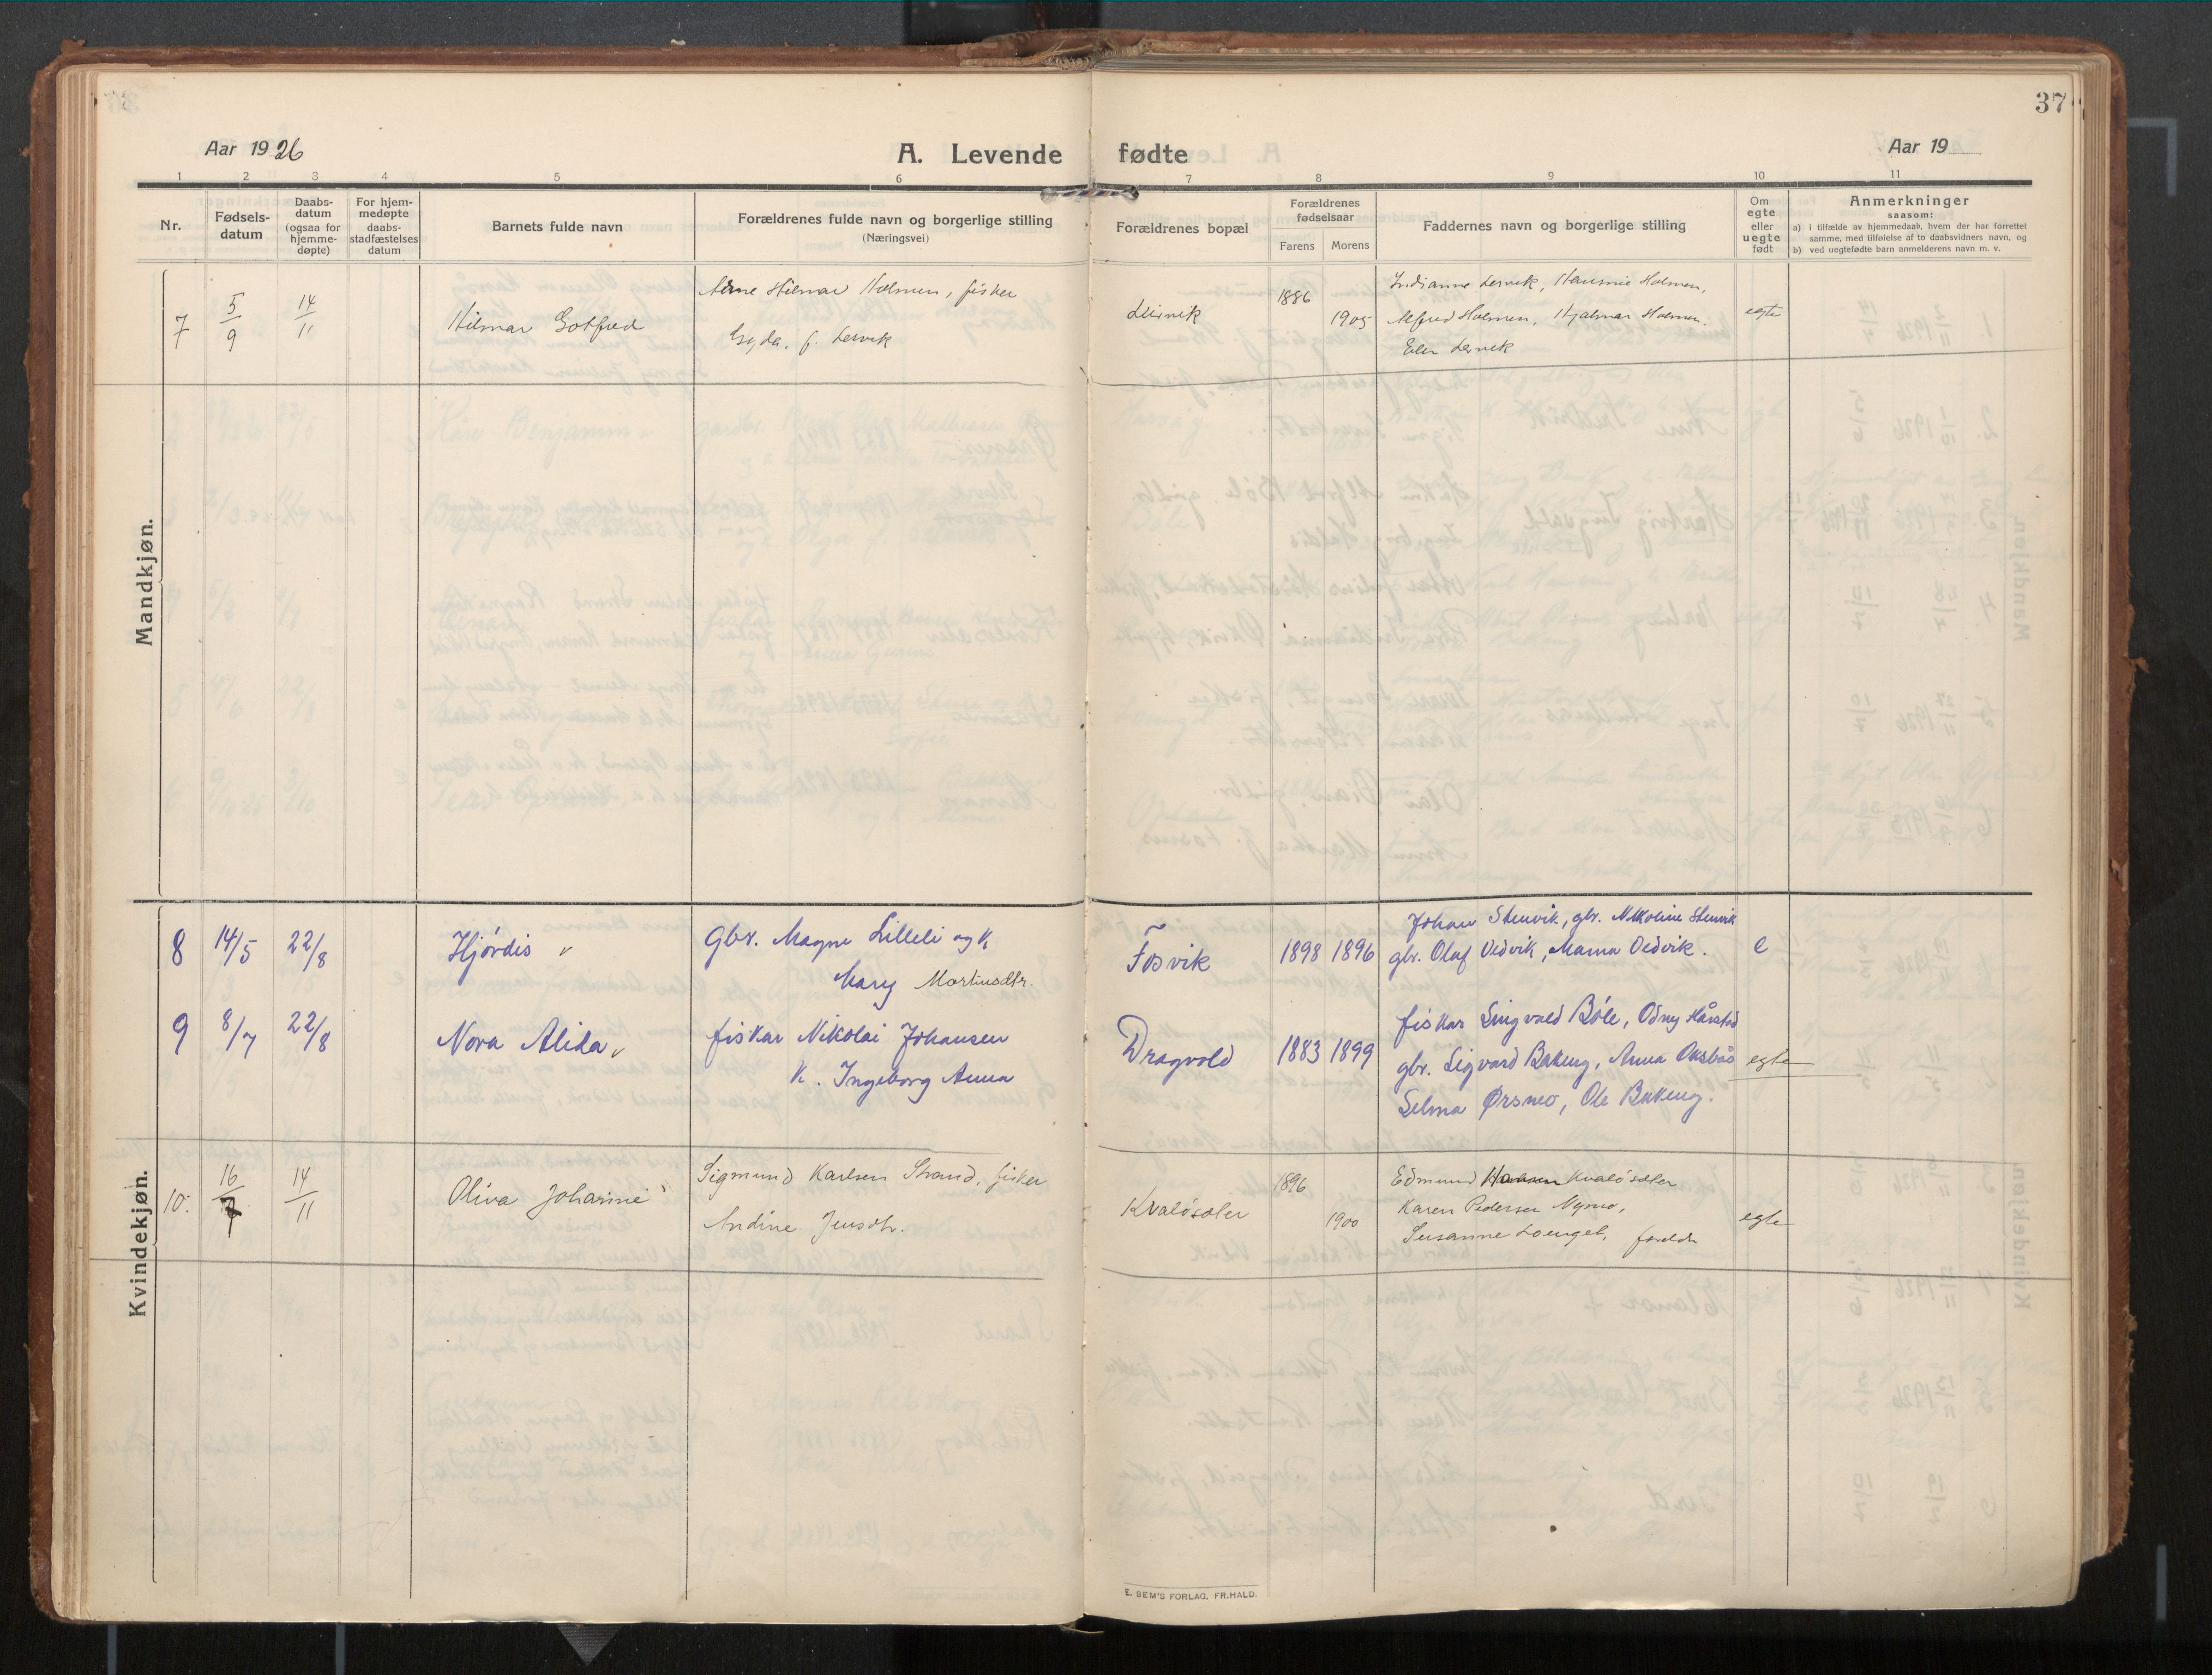 37
Aar 1926
A. Levende fødte
Aar 19
1 2 3 4 5 6 7 8 9 10 11
Nr.
Fødsels-
datum
Daabs-
datum
(ogsaa for
hjemme-
døpte)
For hjem-
medøpte
daabs-
stadfæstelses
datum
Barnets fulde navn
Forældrenes fulde navn og borgerlige stilling
(Næringsvei)
Forældrenes bopæl
Forældrenes
fødselsaar
Farens Morens
Faddernes navn og borgerlige stilling
Om
egte
eller
uegte
født
Anmerkninger
saasom:
a) i tilfælde av hjemmedaab, hvem der har forrettet
samme, med tilføielse af to daabsvidners navn, og
b) ved uegtefødte barn anmelderens navn m. v.
Mandkjøn.
7 5/9 14/11 Hilmar Gotfred
Arne Hilmar Holmen, fisker
Gyda, f. Lervik
1886
1905
Lervik, Holmen,
Alfred Holmen, Hjalmar Holmen.
Lervik
egte
Kvindekjøn.
8 14/5 22/8 Hjørdis
Gbr. Magne Lilleli og k
Mary Martinsdtr.
Fosvik 1898 1896
Johan Stenvik, gbr. Nikoline Stenvik
gbr. Olaf Vedvik, Mama Vedvik.
e
9 8/7 22/8 Nora Alida
fiskar Nikolai Johansen
k. Ingeborg Anna
Dragvold 1883 1899
fiskar Singvald Bóle, Odny Hårstad
gbr. Sigvard Bakeng, Anna Oksbås
Selma Ørsneo, Ole Bakeng.
egte
10. 16/7 14/11 Oliva Johanne
Sigmund Karlsen Strand, fisker
Andine Jensdtr.
Kvaløsæter 1896
1900
Edmund Hansen Kvaløsæter
Karen Pedersen Nymo,
Susanne Loenget,
egte
E. SEM'S FORLAG, FR.HALD.